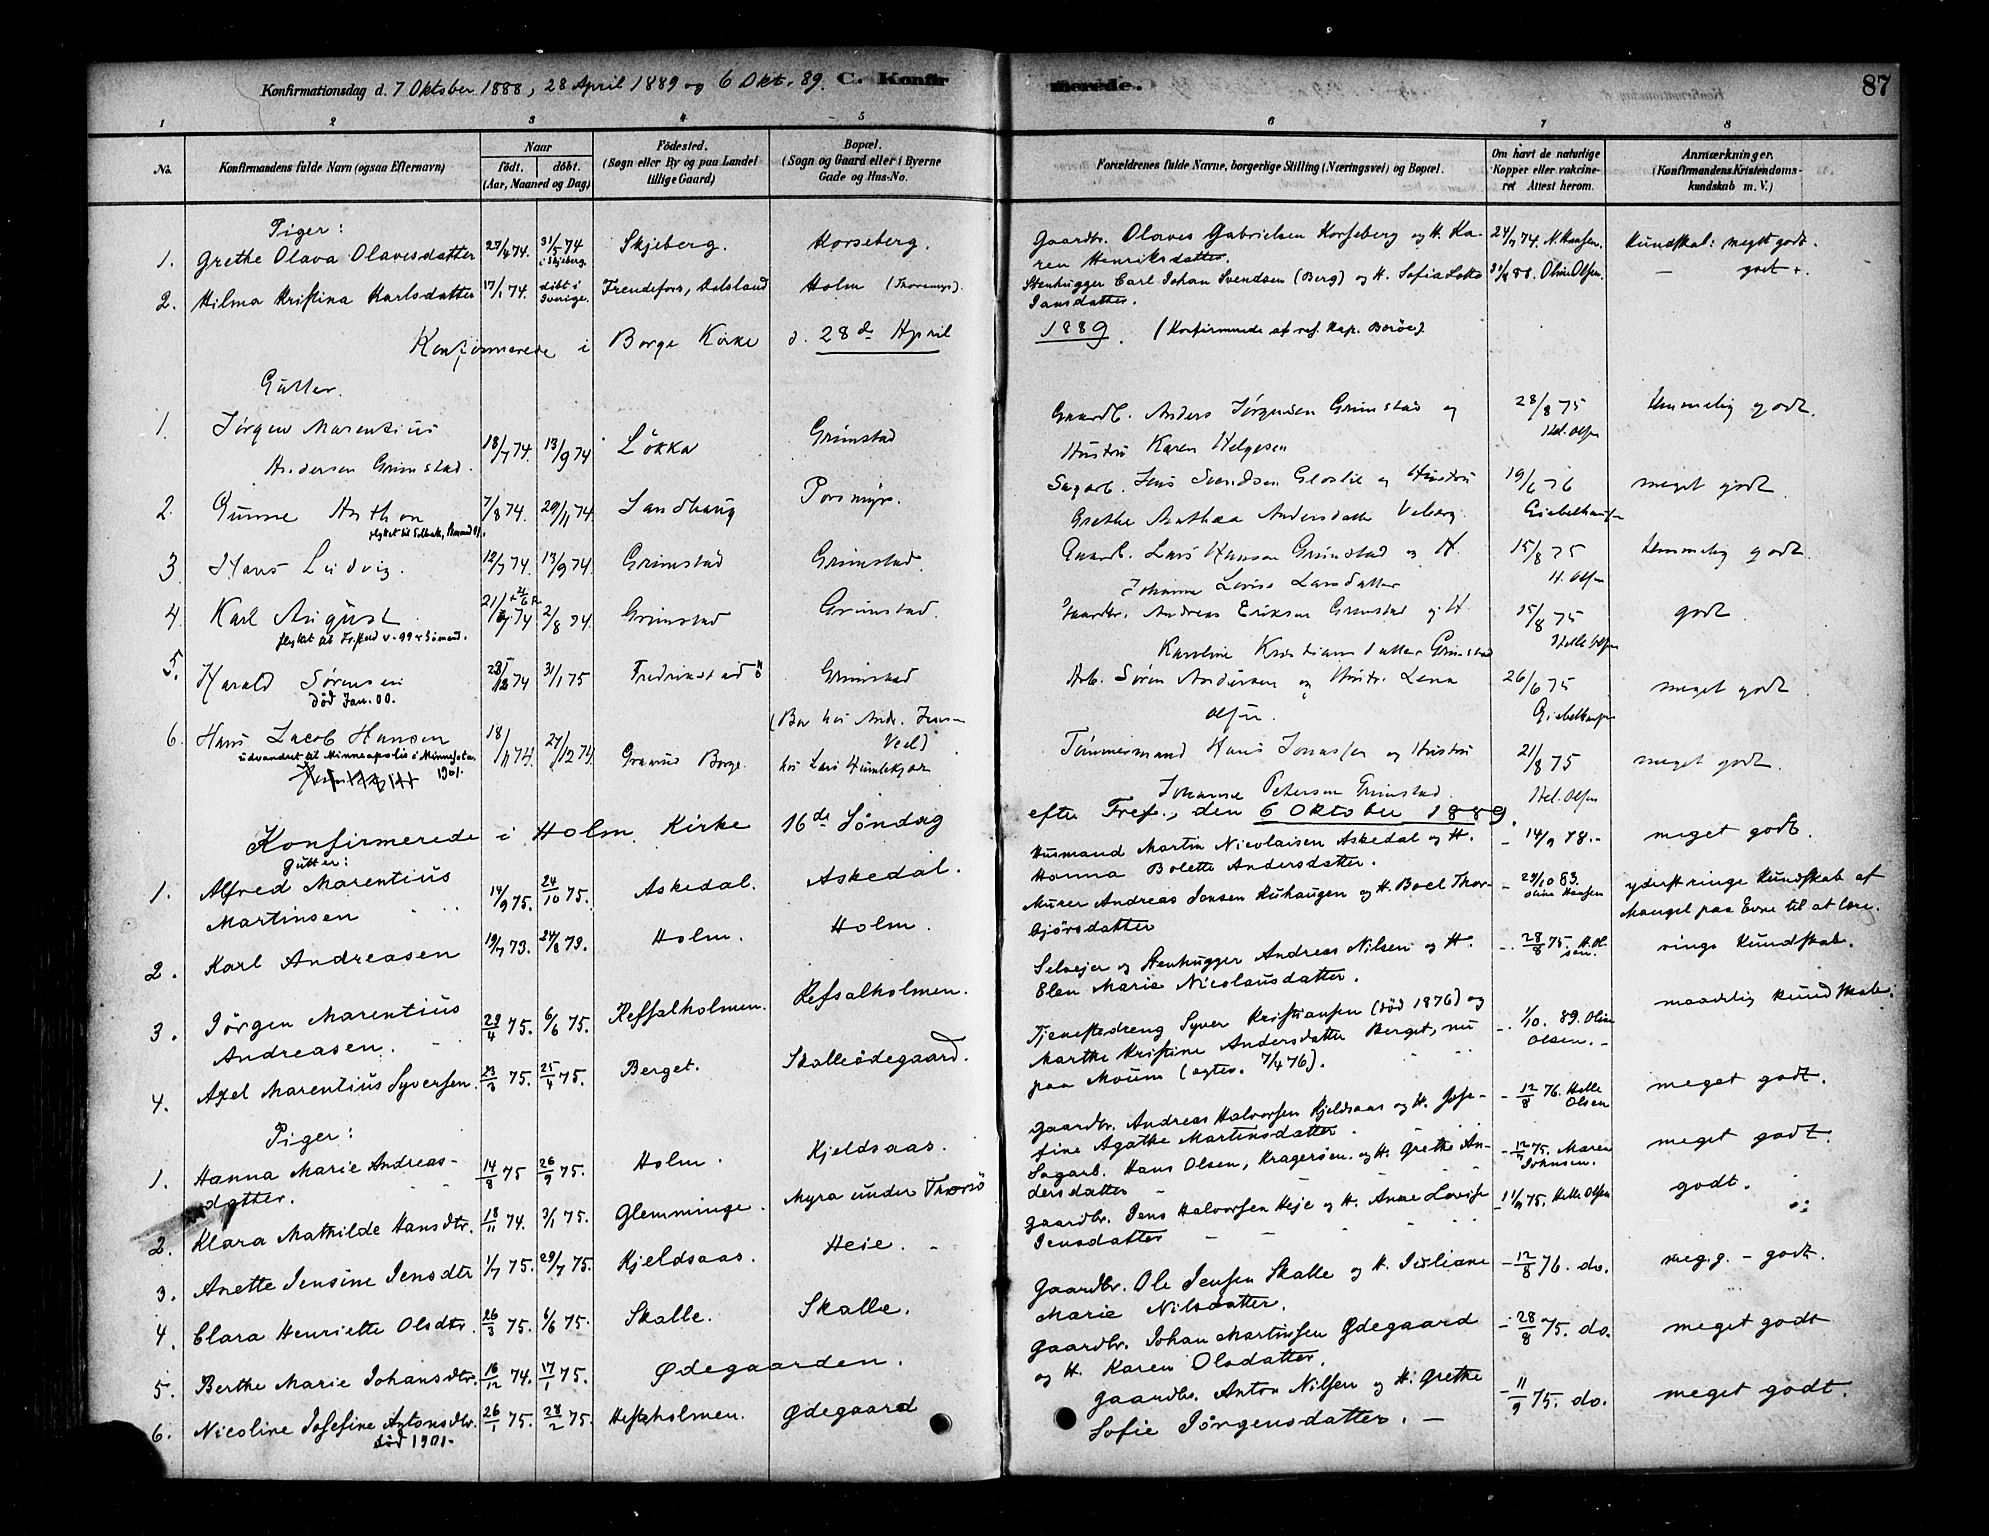 Konfirmationsdag d. 7 Oktober 1888, 28 April 1889 og 6 Okt. 89. C. Konfirmerede. 87
1 2 3 4 5 6 7 8
No. Konfirmandens fulde Navn (ogsaa Efternavn) Naar født. døbt. (Aar, Maaned og Dag) Fødested. (Sogn eller By og paa Landet tillige Gaard) Bopæl. (Sogn og Gaard eller i Byerne Gade og Hus-No. Forældrenes fulde Navne, borgerlige Stilling (Næringsvei) og Bopæl. Om havt de naturlige Kopper eller vakcineret Attest herom. Anmærkninger. (Konfirmandens Kristendomskundskab m. V.)
Piger:
1. Grethe Olava Olavesdatter 27/4 74. 31/5 74 i Skjeberg. Skjeberg. Korseberg. Gaardbr. Olaves Gabrielsen Korseberg og H. Karen Henriksdatter. 24/9 74. N. Hansen. Kundskab: meget godt.
2. Hilma Kristina Karlsdatter 17/1 74. døbt i Sverige. Frendefors, Dalsland Holm Stenhugger Carl Johan Svendsen (Berg) og H. Sofia Lotta Jansdatter. 88. Olin Olsen. — godt +.
Konfirmerede i Borge Kirke d. 28de April 1889. (Konfirmerede af res. Kap. Borøe)
Gutter.
1. Jørgen Marentius Andersen Grimstad. 18/7 74. 13/9 74 Løkka Grimstad Gaardb. Anders Jørgensen Grimstad og Hustru Karen Helgesen 28/8 75 Hel. Olsen Temmelig godt.
2. Gunne Anthon 7/8 74. 29/11 74. Sandhaug Porsmyr. Jens Svendsen og Hustru Grethe Mathea Andersdatter 19/6 76 Giebelhausen meget godt.
3. Hans Ludvig. 12/7 74. 13/9 74. Grimstad Grimstad. Gaardb. Lars Hansen Grimstad og H. Johanne Lovise Larsdatter 15/8 75 H. Olsen Temmelig godt.
4. Karl August 21/ 74 2/8 74. Grimstad Grimstad. Gaardbr. Andreas Eriksen Grimstad og H. Karoline Kristiansdatter Grimstad 15/8 75 Helle Olsen godt.
flyttet til Fr.stad
5. Harald Sørensen 28/12 74 31/1 75 Fredrikstad Grimstad Arb. Søren Andersen og Hustr. Lena Olsen. 26/6 75 Giebelhausen meget godt.
død Jan. 00.
6. Hans Jacob Hansen 18/11 74. 27/12 74. Borge. (Bor hos Andr. Jens- Veel) hos Lars Humlekjær Tømmermand Hans Jonassen og Hustru Johanne Petersen Grimstad. 21/8 75 Hel. Olsen meget godt.
udvandret til Minneapolis i Minnesota 1901.
Konfirmerede i Holm Kirke 16de Søndag efter Tref., den 6 Oktober 1889.
Gutter:
1. Alfred Marentius Martinsen 14/9 75. 24/10 75. Askedal. Askedal. Husmand Martin Nicolaisen Askedal og H. Hanna Bolette Andersdatter. – 14/9 78.– meget godt.
2. Karl Andreasen 19/7 73. 24/8 73. Holm. Holm. Murer Andreas Jensen Kuhaugen og H. Boel Thorbjørsdatter – 29/10 83. Oline Hansen yderst ringe Kundskab af Mangel paa Evne til at lære.
3. Jørgen Marentius Andreasen. 29/4 75. 6/6 75. Refsalholmen. Refsalholmen. Selvejer og Stenhugger Andreas Nilsen og H. Elen Marie Nicolausdatter. – 28/8 75. H. Olsen. ringe Kundskab.
4. Axel Marentius Syversen. 23/3 75. 25/4 75. Berget. Skalleødegaard. Tjenestedreng Syver Kristiansen (død 1876) og Marthe Kristine Andersdatter Berget, nu paa Moum (ægtev. 7/4 76). –. 1/10. 89. Olin Olsen.– maadelig kundskab.
Piger:
1. Hanna Marie Andreasdatter. 14/8 75 26/9 75. Holm. Kjeldsaas. Gaardbr. Andreas Halvorsen Kjeldsaas og H. Josefine Agathe Martinsdatter. – 12/8 76. Helle Olsen meget godt.
2. Klara Mathilde Hansdtr. 18/11 74. 3/1 75. Glemminge. Myra under Thorsø Sagarb. Hans Olsen, Kragerøen. og H. Grethe Andersdatter 75. Maren Johnsen. meget godt.
3. Anette Jensine Jensdtr 1/7 75. 29/7 75. Kjeldsaas. Heie. Gaardbr. Jens Halvorsen Heje og H. Anne Lovise Jensdatter 11/9 75. Helle Olsen godt.
4. Clara Henriette Olsdtr. 26/3 75. 6/6 75. Skalle. Skalle. Gaardbr. Ole Jensen Skalle og H. Juliane Marie Nilsdatter. – 12/8 76. do. meg. g. – godt.
5. Berthe Marie Johansdtr. 16/12 74. 17/1 75. Ødegaarden. Gaardbr. Johan Martinsen Ødegaard og H. Karen Olsdatter. – 28/8 75. do. meget godt
6. Nicoline Josefine Antonsdtr. 26/1 75. 28/2 75. Hestholmen. Ødegaard Gaardbr. Anton Nilsen og H. Grethe Sofie Jørgensdatter. – – 11/9 75. do. meget godt.
død 1901.